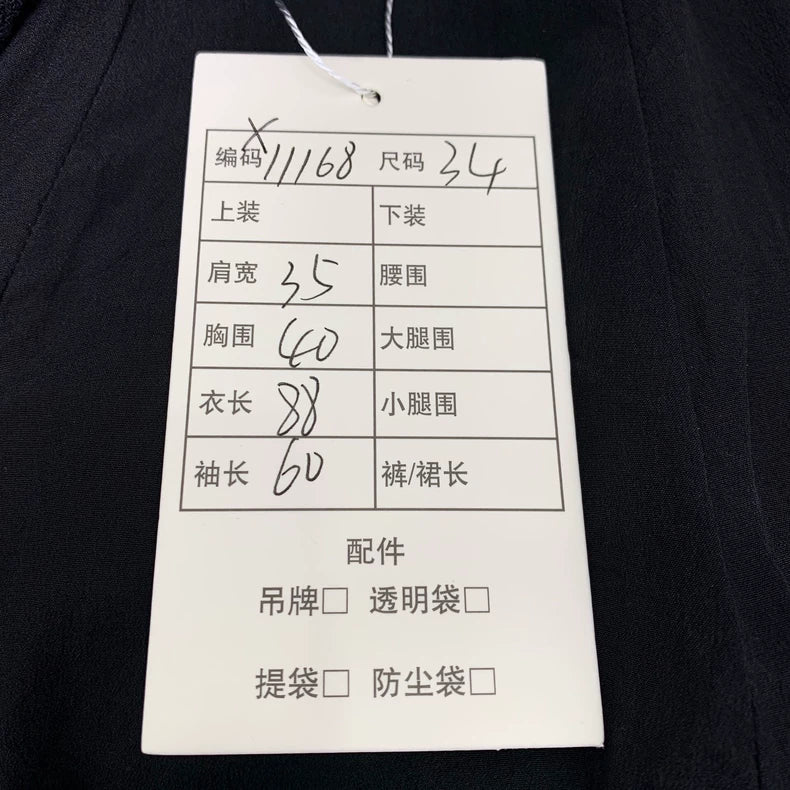 编码 X11168 尺码 34
上装 下装
肩宽 35 腰围
胸围 40 大腿围
衣长 88 小腿围
袖长 60 裤/裙长
配件
吊牌□ 透明袋□
提袋□ 防尘袋□